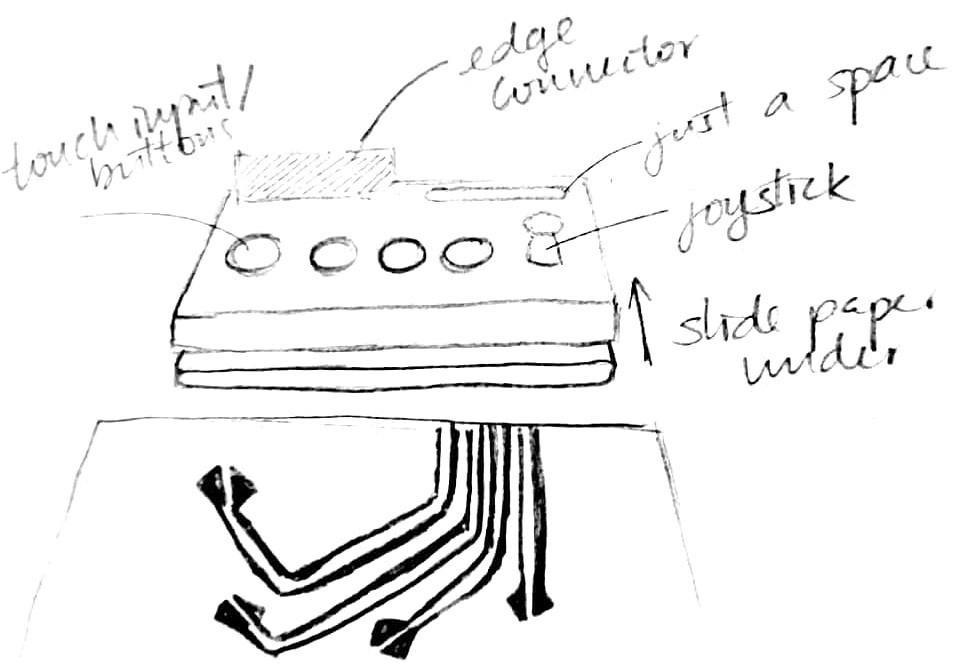 edge
connector
touch input/
buttons
just a space
joystick
slide paper
under